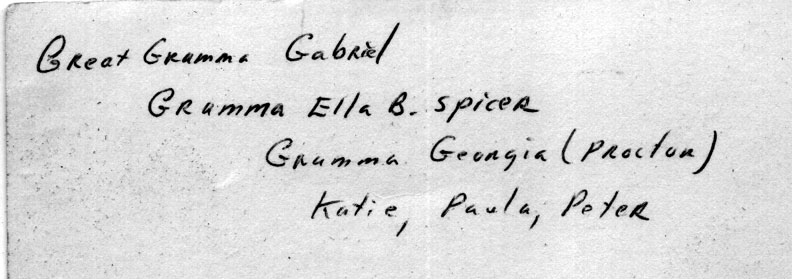 Great Gramma Gabriel
Gramma Ella B. Spicer
Gramma Georgia (Proctor)
Katie, Paula, Peter